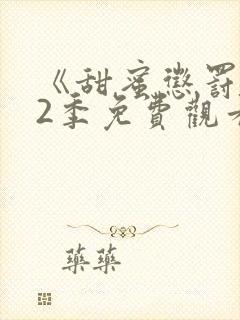 《甜蜜懲罰
2季免費觀看
藥藥